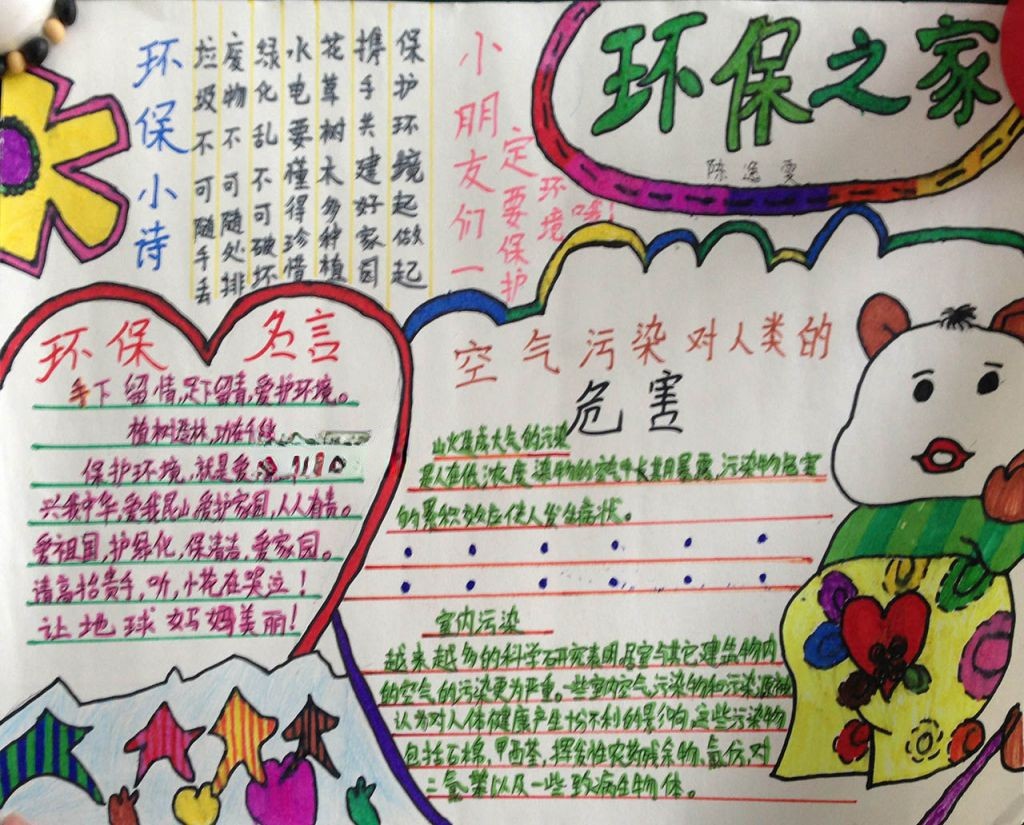 环保之家
陈逸雯
小朋友们一
定要保护
环境哦！
环保小诗
垃圾不可随手丢
废物不可随处排
绿化乱不可破坏
水电要懂得珍惜
花草树木多种植
携手共建好家园
保护环境起做起
环保 名言
手下留情,足下留青,爱护环境。
植树造林,功在千秋
保护环境,就是爱
兴我中华,爱我昆山,爱护家园,人人有责。
爱祖国,护绿化,保清洁,爱家园。
请高抬贵手,听,小花在哭泣！
让地球妈妈美丽！
空气污染对人类的
危害
大气的污染
人在低浓度染物的空气中长期暴露,污染物危害
的累积效应使人发生症状。
室内污染
越来越多的科学研究表明居室与其它建筑物内
的空气的污染更为严重。一些室内空气污染物和污染源被
认为对人体健康产生十分不利的影响,这些污染物
包括石棉,甲西荃,挥发性农药残余物,氯仿,对
二氯苯以及一些致病生物体。